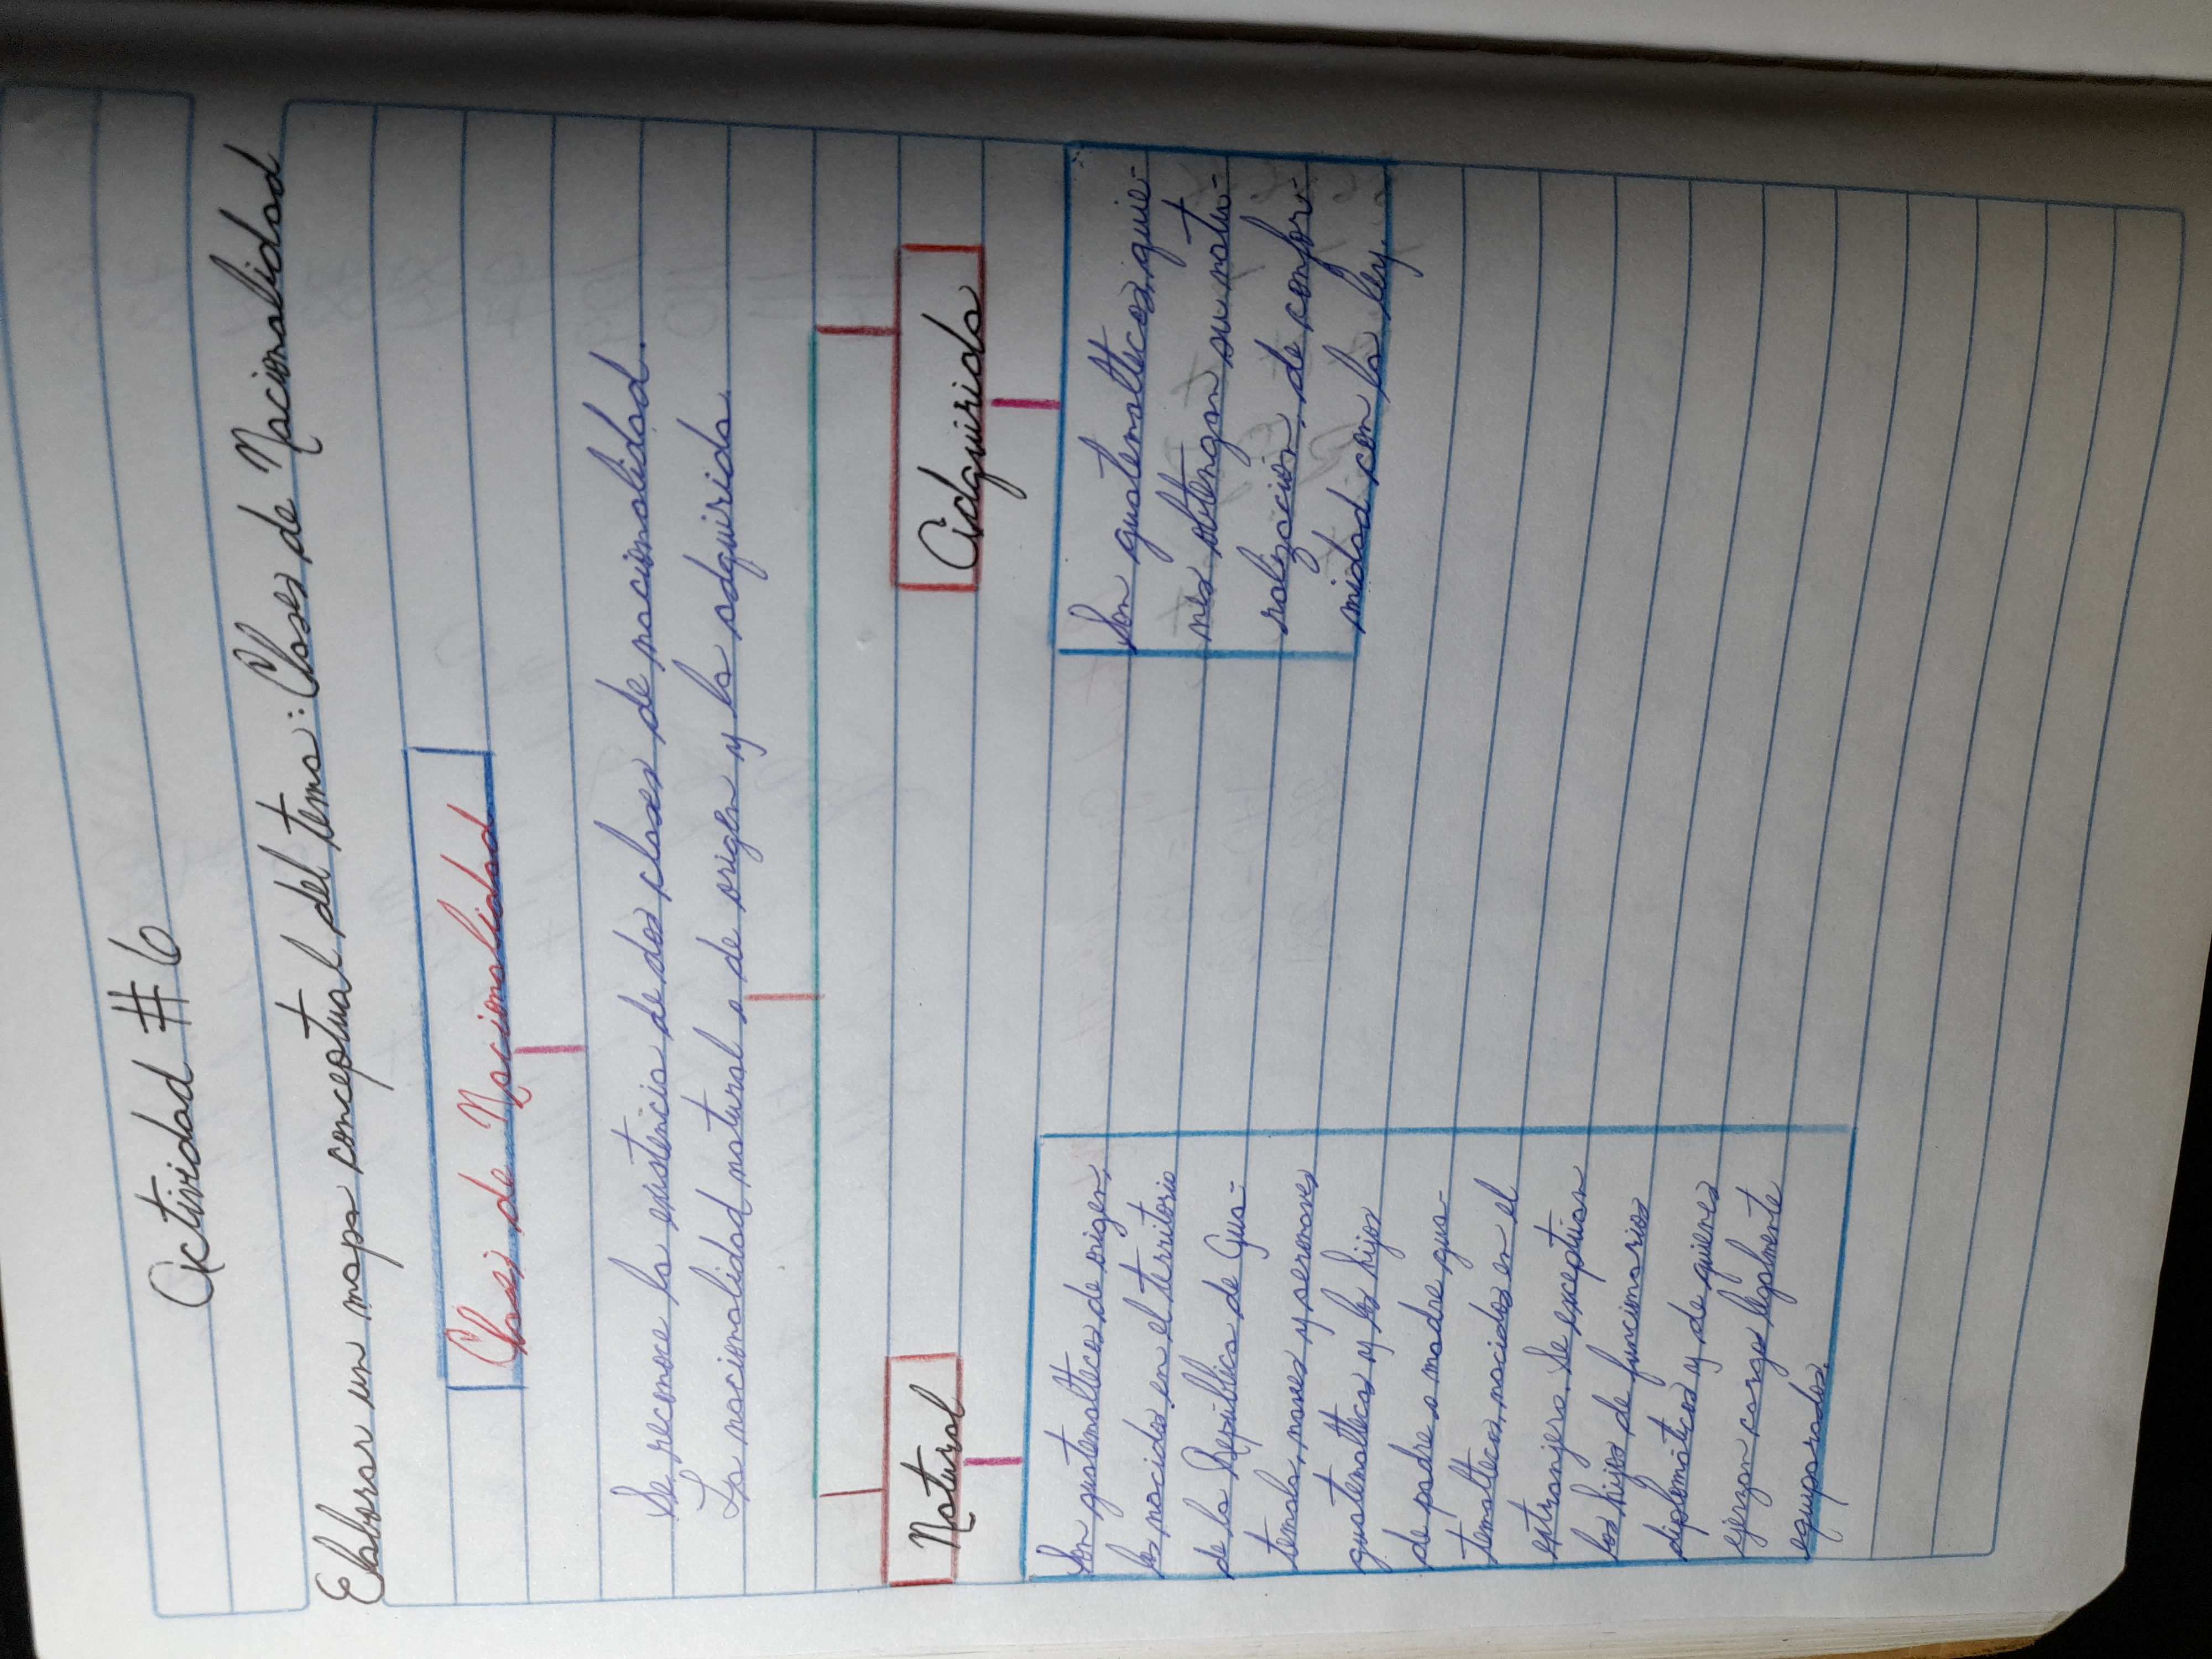 Actividad # 6
Elaborar un mapa conceptual del tema: Clases de Nacionalidad
Clases de Nacionalidad
Se reconoce la existencia de dos clases de nacionalidad.
La nacionalidad natural o de origen y la adquirida.
Natural
Son guatemaltecos de origen,
los nacidos en el territorio
de la República de Gua-
temala, naves y aeronaves
guatemaltecas y los hijos
de padre o madre gua-
temaltecos, nacidos en el
extranjero. Se exceptúan
los hijos de funcionarios
diplomáticos y de quienes
ejerzan cargos legalmente
equiparados.
Adquirida
Son guatemaltecos, quie-
nes obtengan su natu-
ralización, de confor-
midad con la ley.